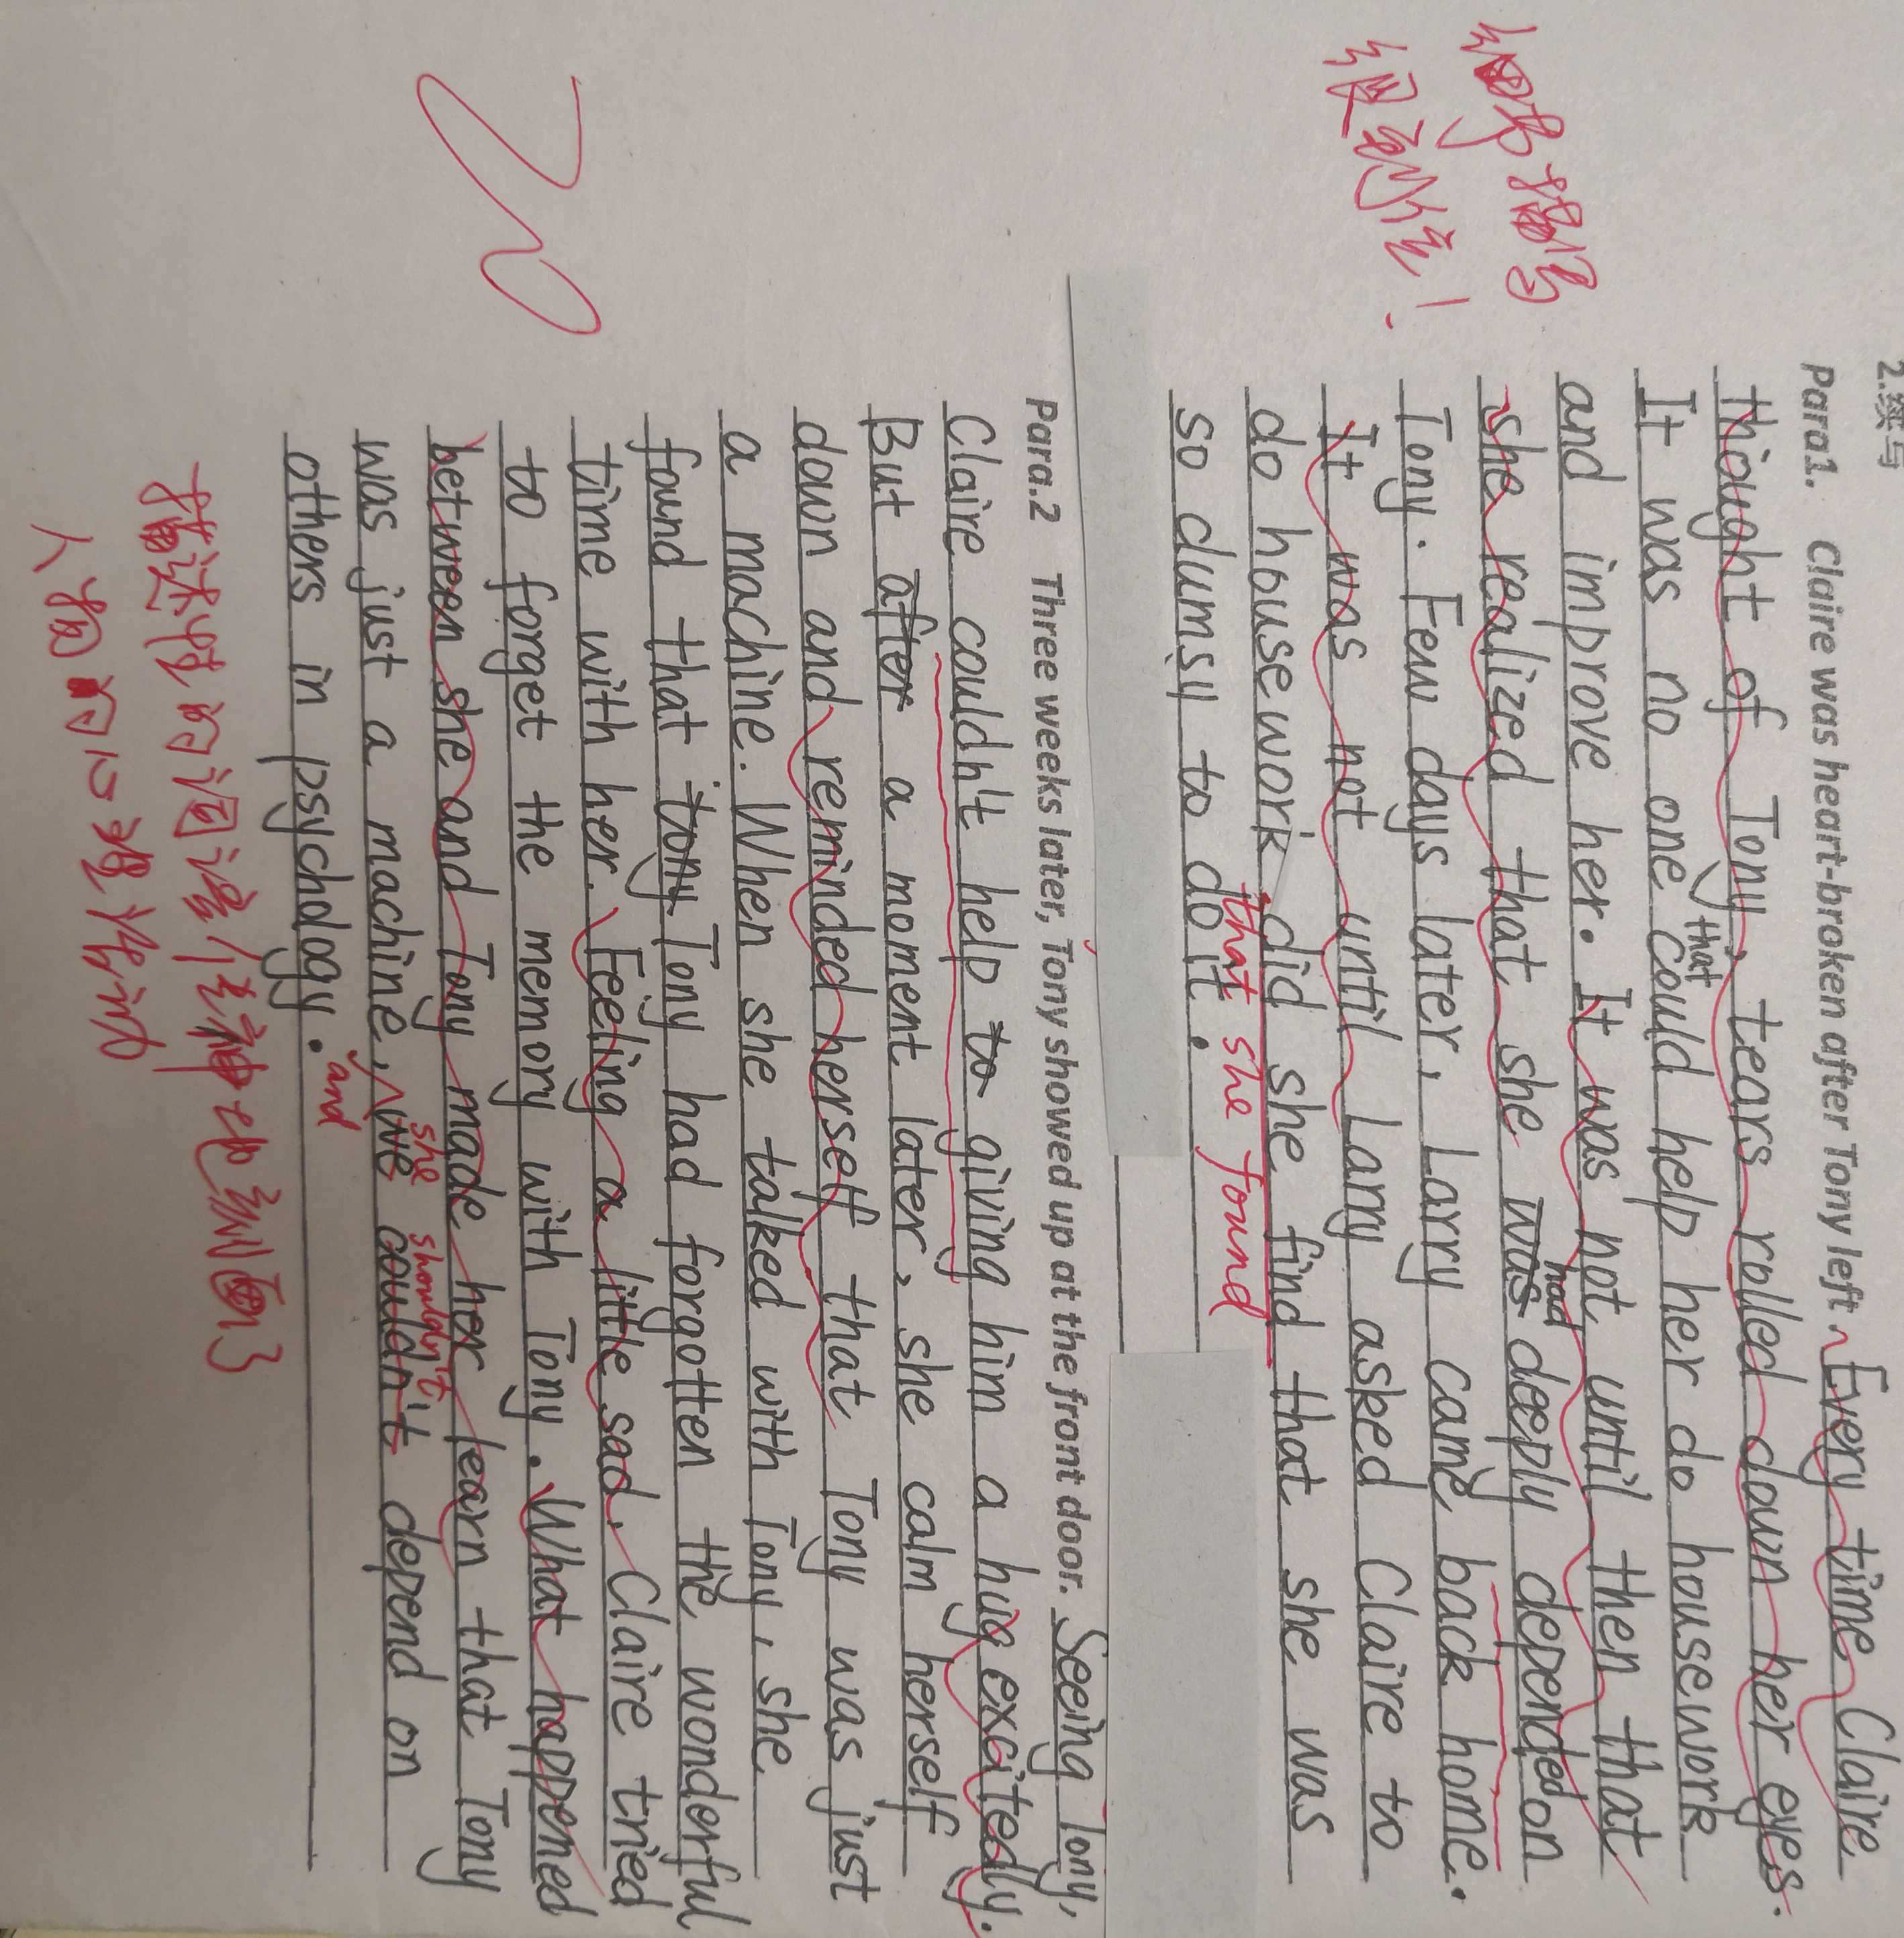 2.续写
Para1. Claire was heart-broken after Tony left. Every time Claire
thought of Tony, tears rolled down her eyes.
It was no one that could help her do housework
and improve her. It was not until then that
she realized that she was had deeply depended on
Tony. Few days later, Larry came back home.
It was not until Larry asked Claire to
do housework did she find that she was
that she found
so clumsy to do it.
Para.2 Three weeks later, Tony showed up at the front door. Seeing Tony,
Claire couldn't help to giving him a hug excitedly.
But after a moment later, she calm herself
down and reminded herself that Tony was just
a machine. When she talked with Tony, she
found that tony Tony had forgotten the wonderful
time with her. Feeling a little sad, Claire tried
to forget the memory with Tony. What happened
between she and Tony made her learn that Tony
was just a machine, we couldn't depend on
and she shouldn't
others in psychology.
20